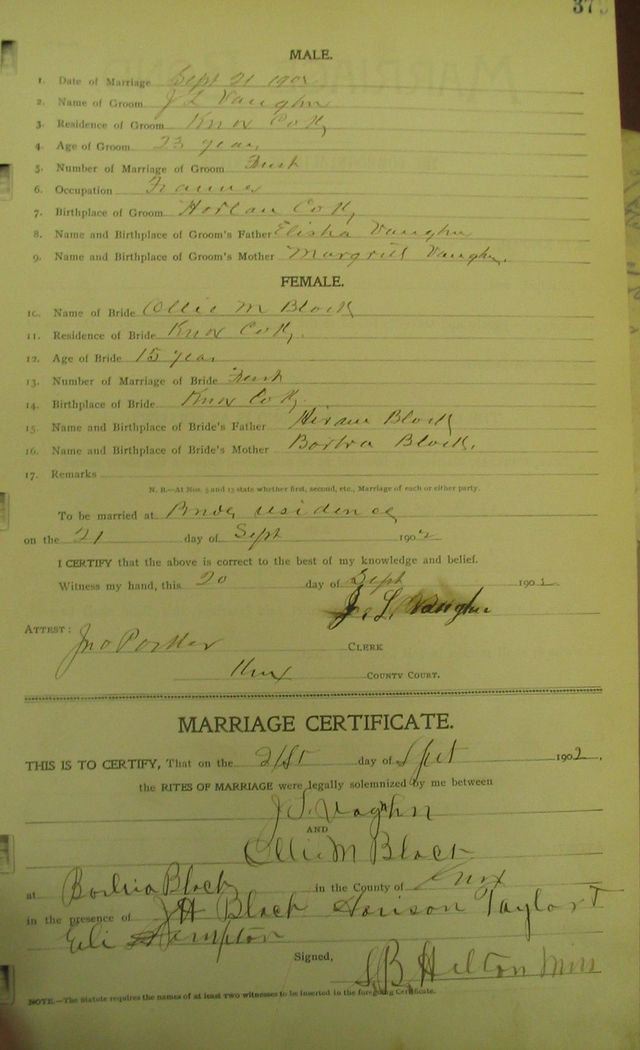 37
MALE.
1. Date of Marriage Sept 21 190
2. Name of Groom J L Vaughn
3. Residence of Groom Knox Co Ky
4. Age of Groom 23 years
5. Number of Marriage of Groom First
6. Occupation Farmer
7. Birthplace of Groom Harlan Co Ky
8. Name and Birthplace of Groom's Father Elisha Vaughn
9. Name and Birthplace of Groom's Mother Margrett Vaughn.
FEMALE.
10. Name of Bride Ollie M Block
11. Residence of Bride Knox Co Ky.
12. Age of Bride 15 year
13. Number of Marriage of Bride First
14. Birthplace of Bride Knox Co Ky.
15. Name and Birthplace of Bride's Father Hiram Block
16. Name and Birthplace of Bride's Mother Block.
17. Remarks
N. B.—At Nos. 5 and 13 state whether first, second, etc., Marriage of each or either party.
To be married at Brides residence
on the 21 day of Sept 1902
I CERTIFY that the above is correct to the best of my knowledge and belief.
Witness my hand, this 20 day of Sept 190
J. L. Vaughn
ATTEST:
Jno Parker CLERK
Knox COUNTY COURT.
MARRIAGE CERTIFICATE.
THIS IS TO CERTIFY, That on the 21st day of Spet 1902.
the RITES OF MARRIAGE were legally solemnized by me between
J. L. Vaghn
AND
Ollie M Black
at Black in the County of Knox
in the presence of J H Black Taylor
Eli Hampton
Signed, S. B. Hilton Min
NOTE.—The Statute requires the names of at least two witnesses to be inserted in the foregoing Certificate.